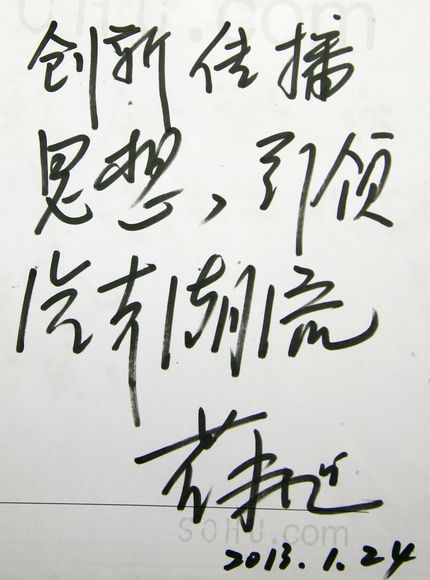 创新传播
思想，引领
汽车潮流
2013.1.24
SOHU.com